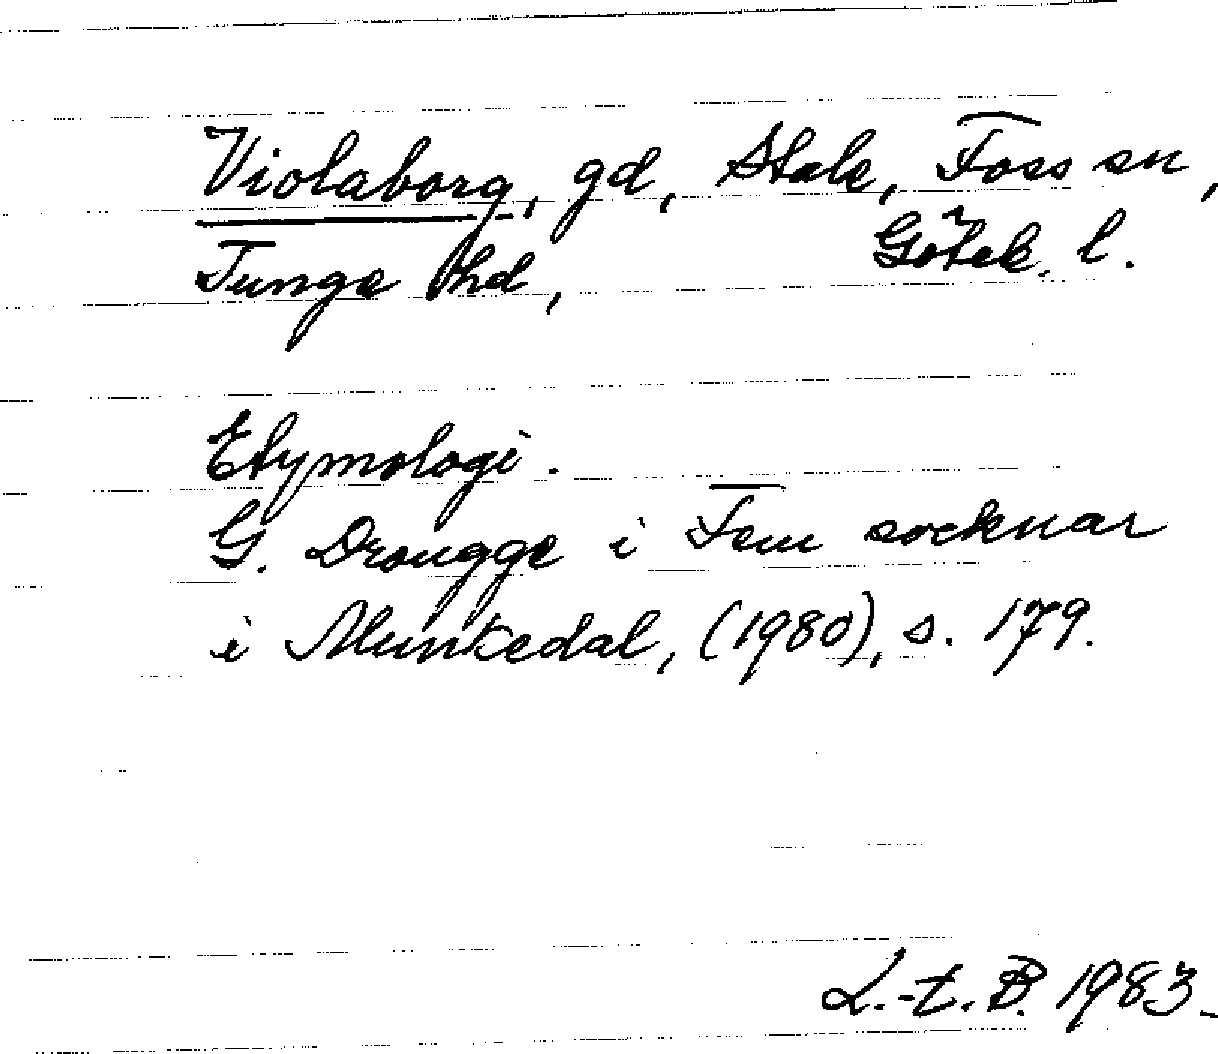 Violaborg, gd, Stale, Foss sn,
Tunge hd, Göteb. l.
Etymologi.
G. Drougge i Fem socknar
i Munkedal, (1980), s. 179.
L.-t. B. 1983.